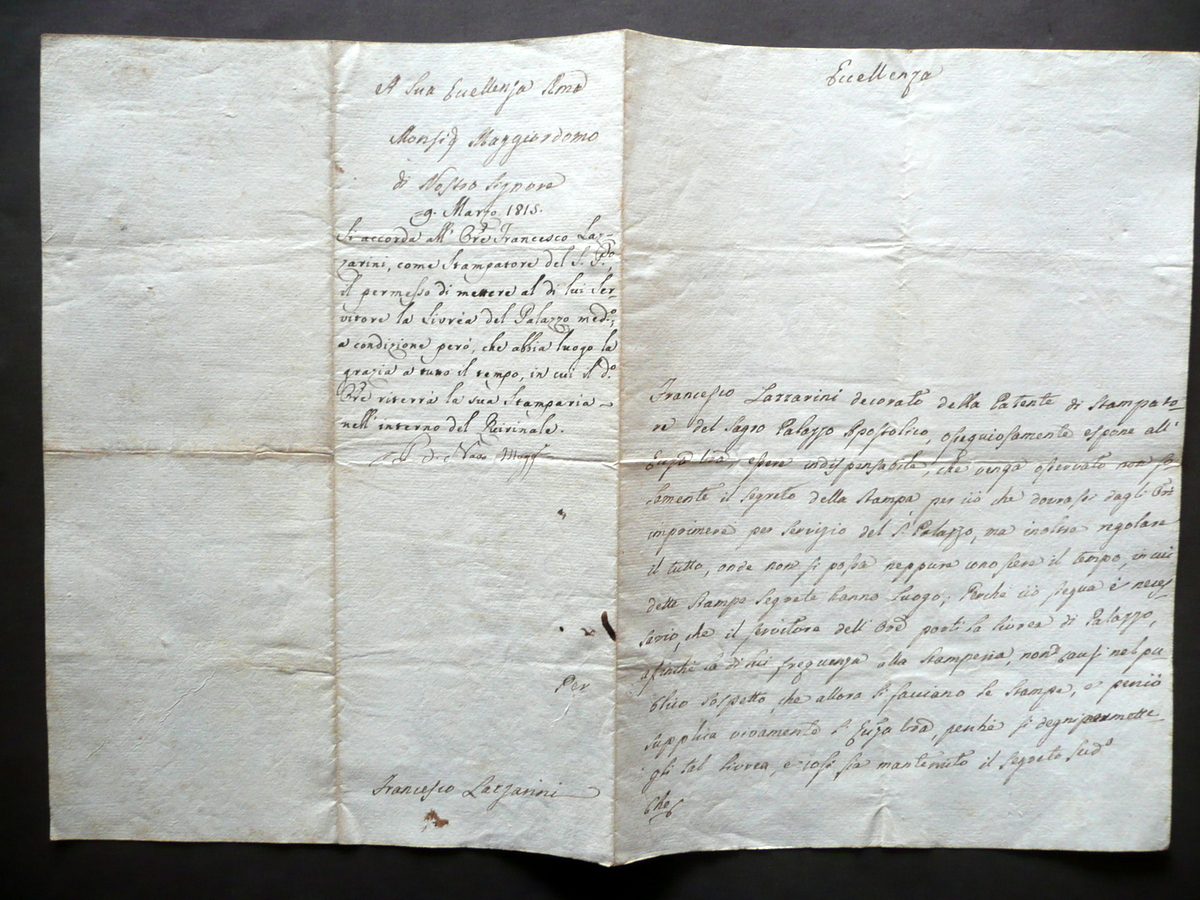 A Sua Eccellenza Rma
Monsig Maggiordomo
di Nostro Signore
9. Marzo 1815.
Si accorda all' Ore Francesco Laz-
zarini, come Stampatore del S. P.
il permesso di mettere al di lui Ser-
vitore la livrea del Palazzo medo,
a condizione però, che abbia luogo la
grazia a tutto il tempo, in cui il do
Ore riterrà la sua Stamparia
nell' interno del Quirinale.
Magg
Per
Francesco Lazzarini
Eccellenza
Francesco Lazzarini decorato della Patente di Stampato-
re del Sagro Palazzo Apostolico, ossequiosamente espone all'
Ecza Vra, essere indispensabile, che venga osservato non so
lamente il segreto della stampa per ciò che dovrassi dagli Ore
imprimere per servizio del S. Palazzo, ma inoltre regolare
il tutto, onde non si possa neppure conoscere il tempo, in cui
dette Stampe Segrete hanno luogo; Perchè ciò segua è neces
sario, che il servitore dell' Ore porti la livrea di Palazzo,
affinchè la di lui frequenza alla stamperia, non causi nel pu
blico sospetto, che allora si facciano le stampe, e perciò
supplica vivamente l' Ecza Vra, perchè si degni permette
gli tal livrea, e così sia mantenuto il segreto sudo
Che